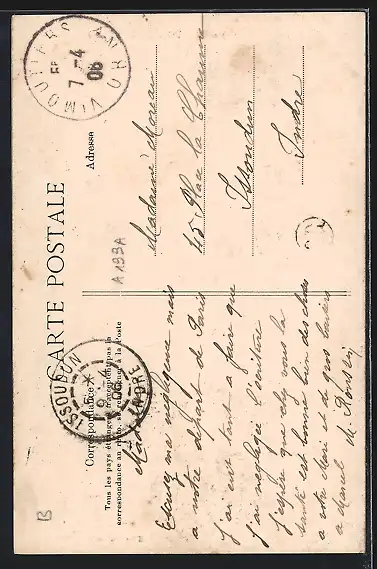 CARTE POSTALE
Correspondance
Adresse
Tous les pays étrangers n'acceptent pas la
correspondance au recto, se renseigner à la Poste
Madame
Excusez ma négligence mais
a notre départ de Paris
j'ai eut tant a faire que
j'ai negligée l'ecriture
j'espère que chez vous la
santé est bonne bien des choses
a votre Mari et de gros baisers
a Marcel
Madame Moreau
45 Place la
Issoudun
Indre
VIMOUTIERS
7 -4
06
ISSOUDUN
INDRE
A 199A
B